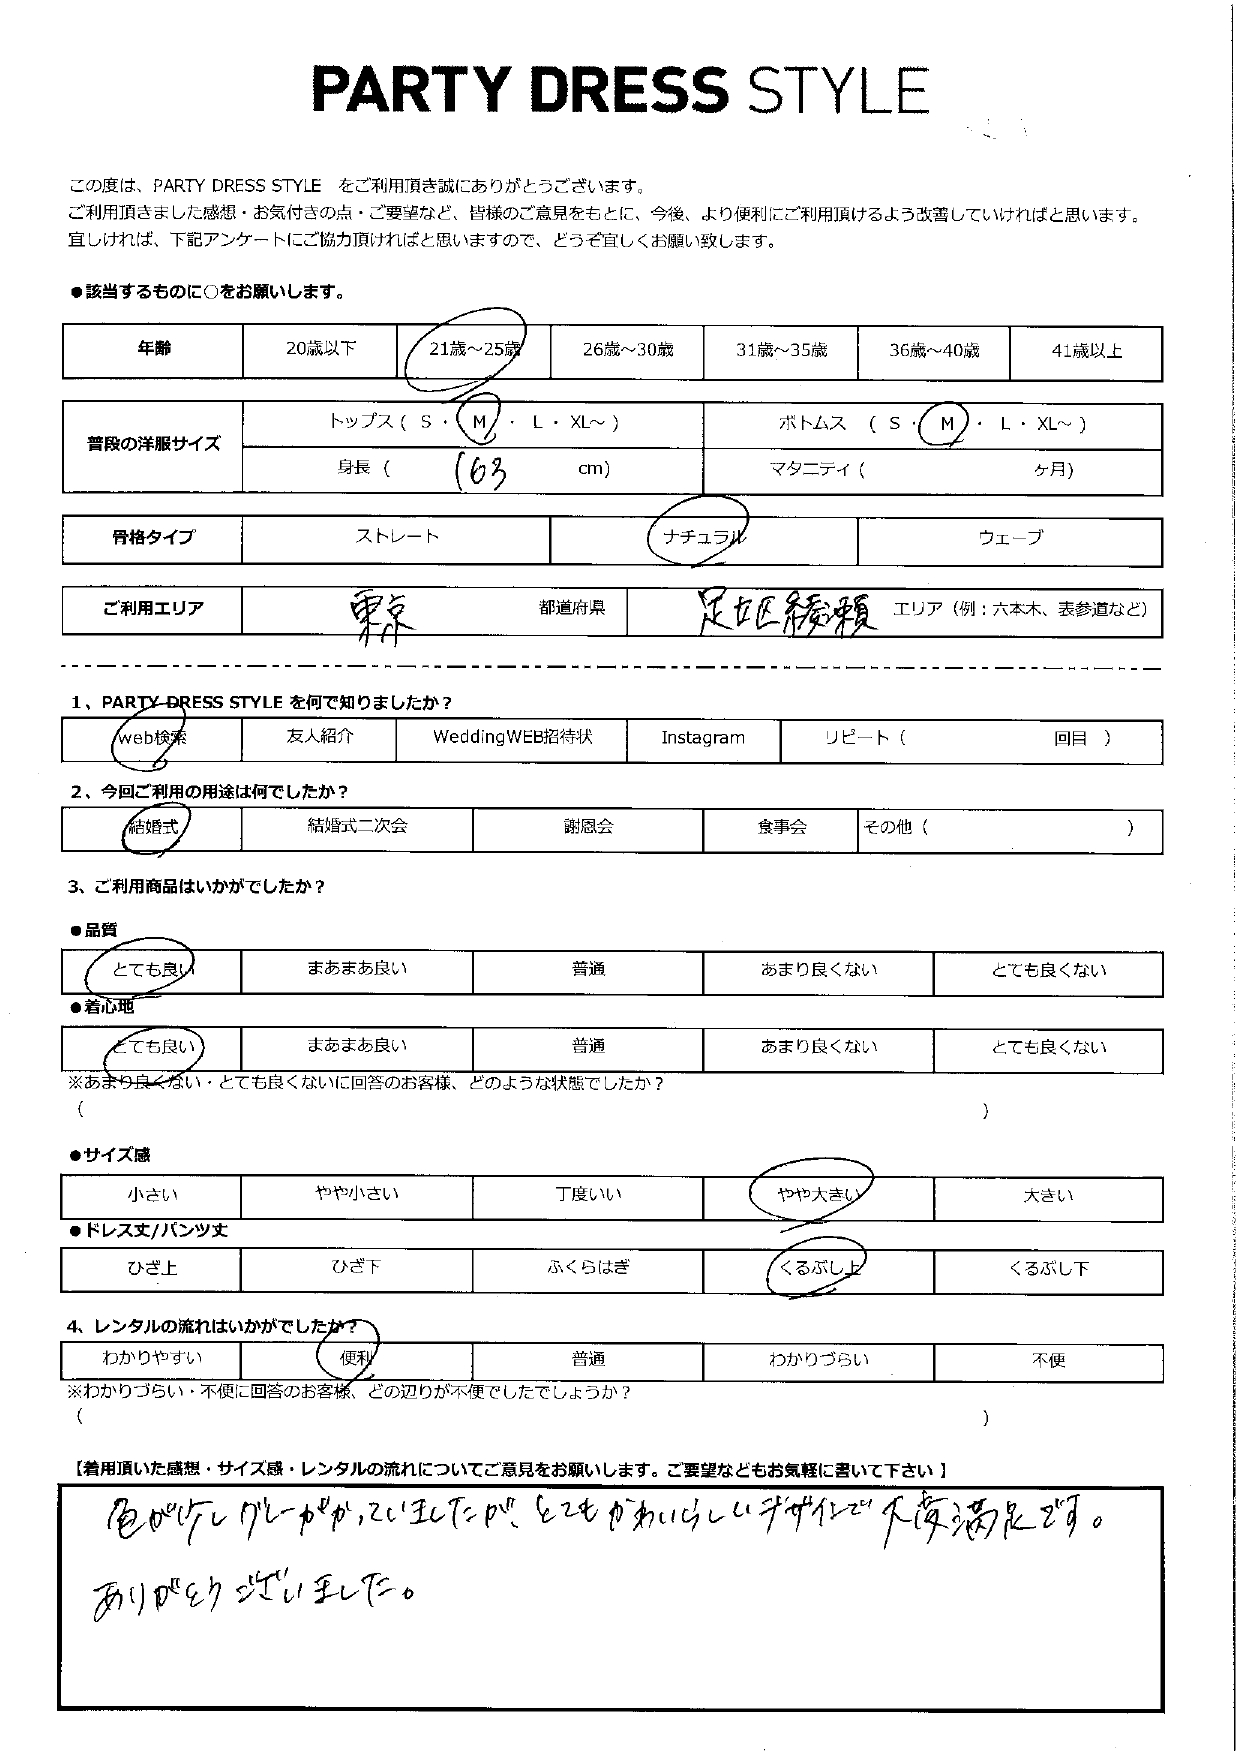 PARTY DRESS STYLE
この度は、PARTY DRESS STYLE をご利用頂き誠にありがとうございます。
ご利用頂きました感想・お気付きの点・ご要望など、皆様のご意見をもとに、今後、より便利にご利用頂けるよう改善していければと思います。
宜しければ、下記アンケートにご協力頂ければと思いますので、どうぞ宜しくお願い致します。
●該当するものに○をお願いします。
年齢 20歳以下 21歳～25歳 26歳～30歳 31歳～35歳 36歳～40歳 41歳以上
普段の洋服サイズ トップス ( S ・ M ・ L ・ XL～ ) ボトムス ( S ・ M ・ L ・ XL～ )
身長 ( 163 cm) マタニティ ( ヶ月)
骨格タイプ ストレート ナチュラル ウェーブ
ご利用エリア 東京 都道府県 足立区綾瀬 エリア（例：六本木、表参道など）
1、PARTY DRESS STYLE を何で知りましたか？
web検索 友人紹介 WeddingWEB招待状 Instagram リピート ( 回目 )
2、今回ご利用の用途は何でしたか？
結婚式 結婚式二次会 謝恩会 食事会 その他 ( )
3、ご利用商品はいかがでしたか？
●品質
とても良い まあまあ良い 普通 あまり良くない とても良くない
●着心地
とても良い まあまあ良い 普通 あまり良くない とても良くない
※あまり良くない・とても良くないに回答のお客様、どのような状態でしたか？
( )
●サイズ感
小さい やや小さい 丁度いい やや大きい 大きい
●ドレス丈/パンツ丈
ひざ上 ひざ下 ふくらはぎ くるぶし上 くるぶし下
4、レンタルの流れはいかがでしたか？
わかりやすい 便利 普通 わかりづらい 不便
※わかりづらい・不便に回答のお客様、どの辺りが不便でしたでしょうか？
( )
【着用頂いた感想・サイズ感・レンタルの流れについてご意見をお願いします。ご要望などもお気軽に書いて下さい 】
色が少しグレーがかっていましたが、とてもかわいらしいデザインで大変満足です。
ありがとうございました。